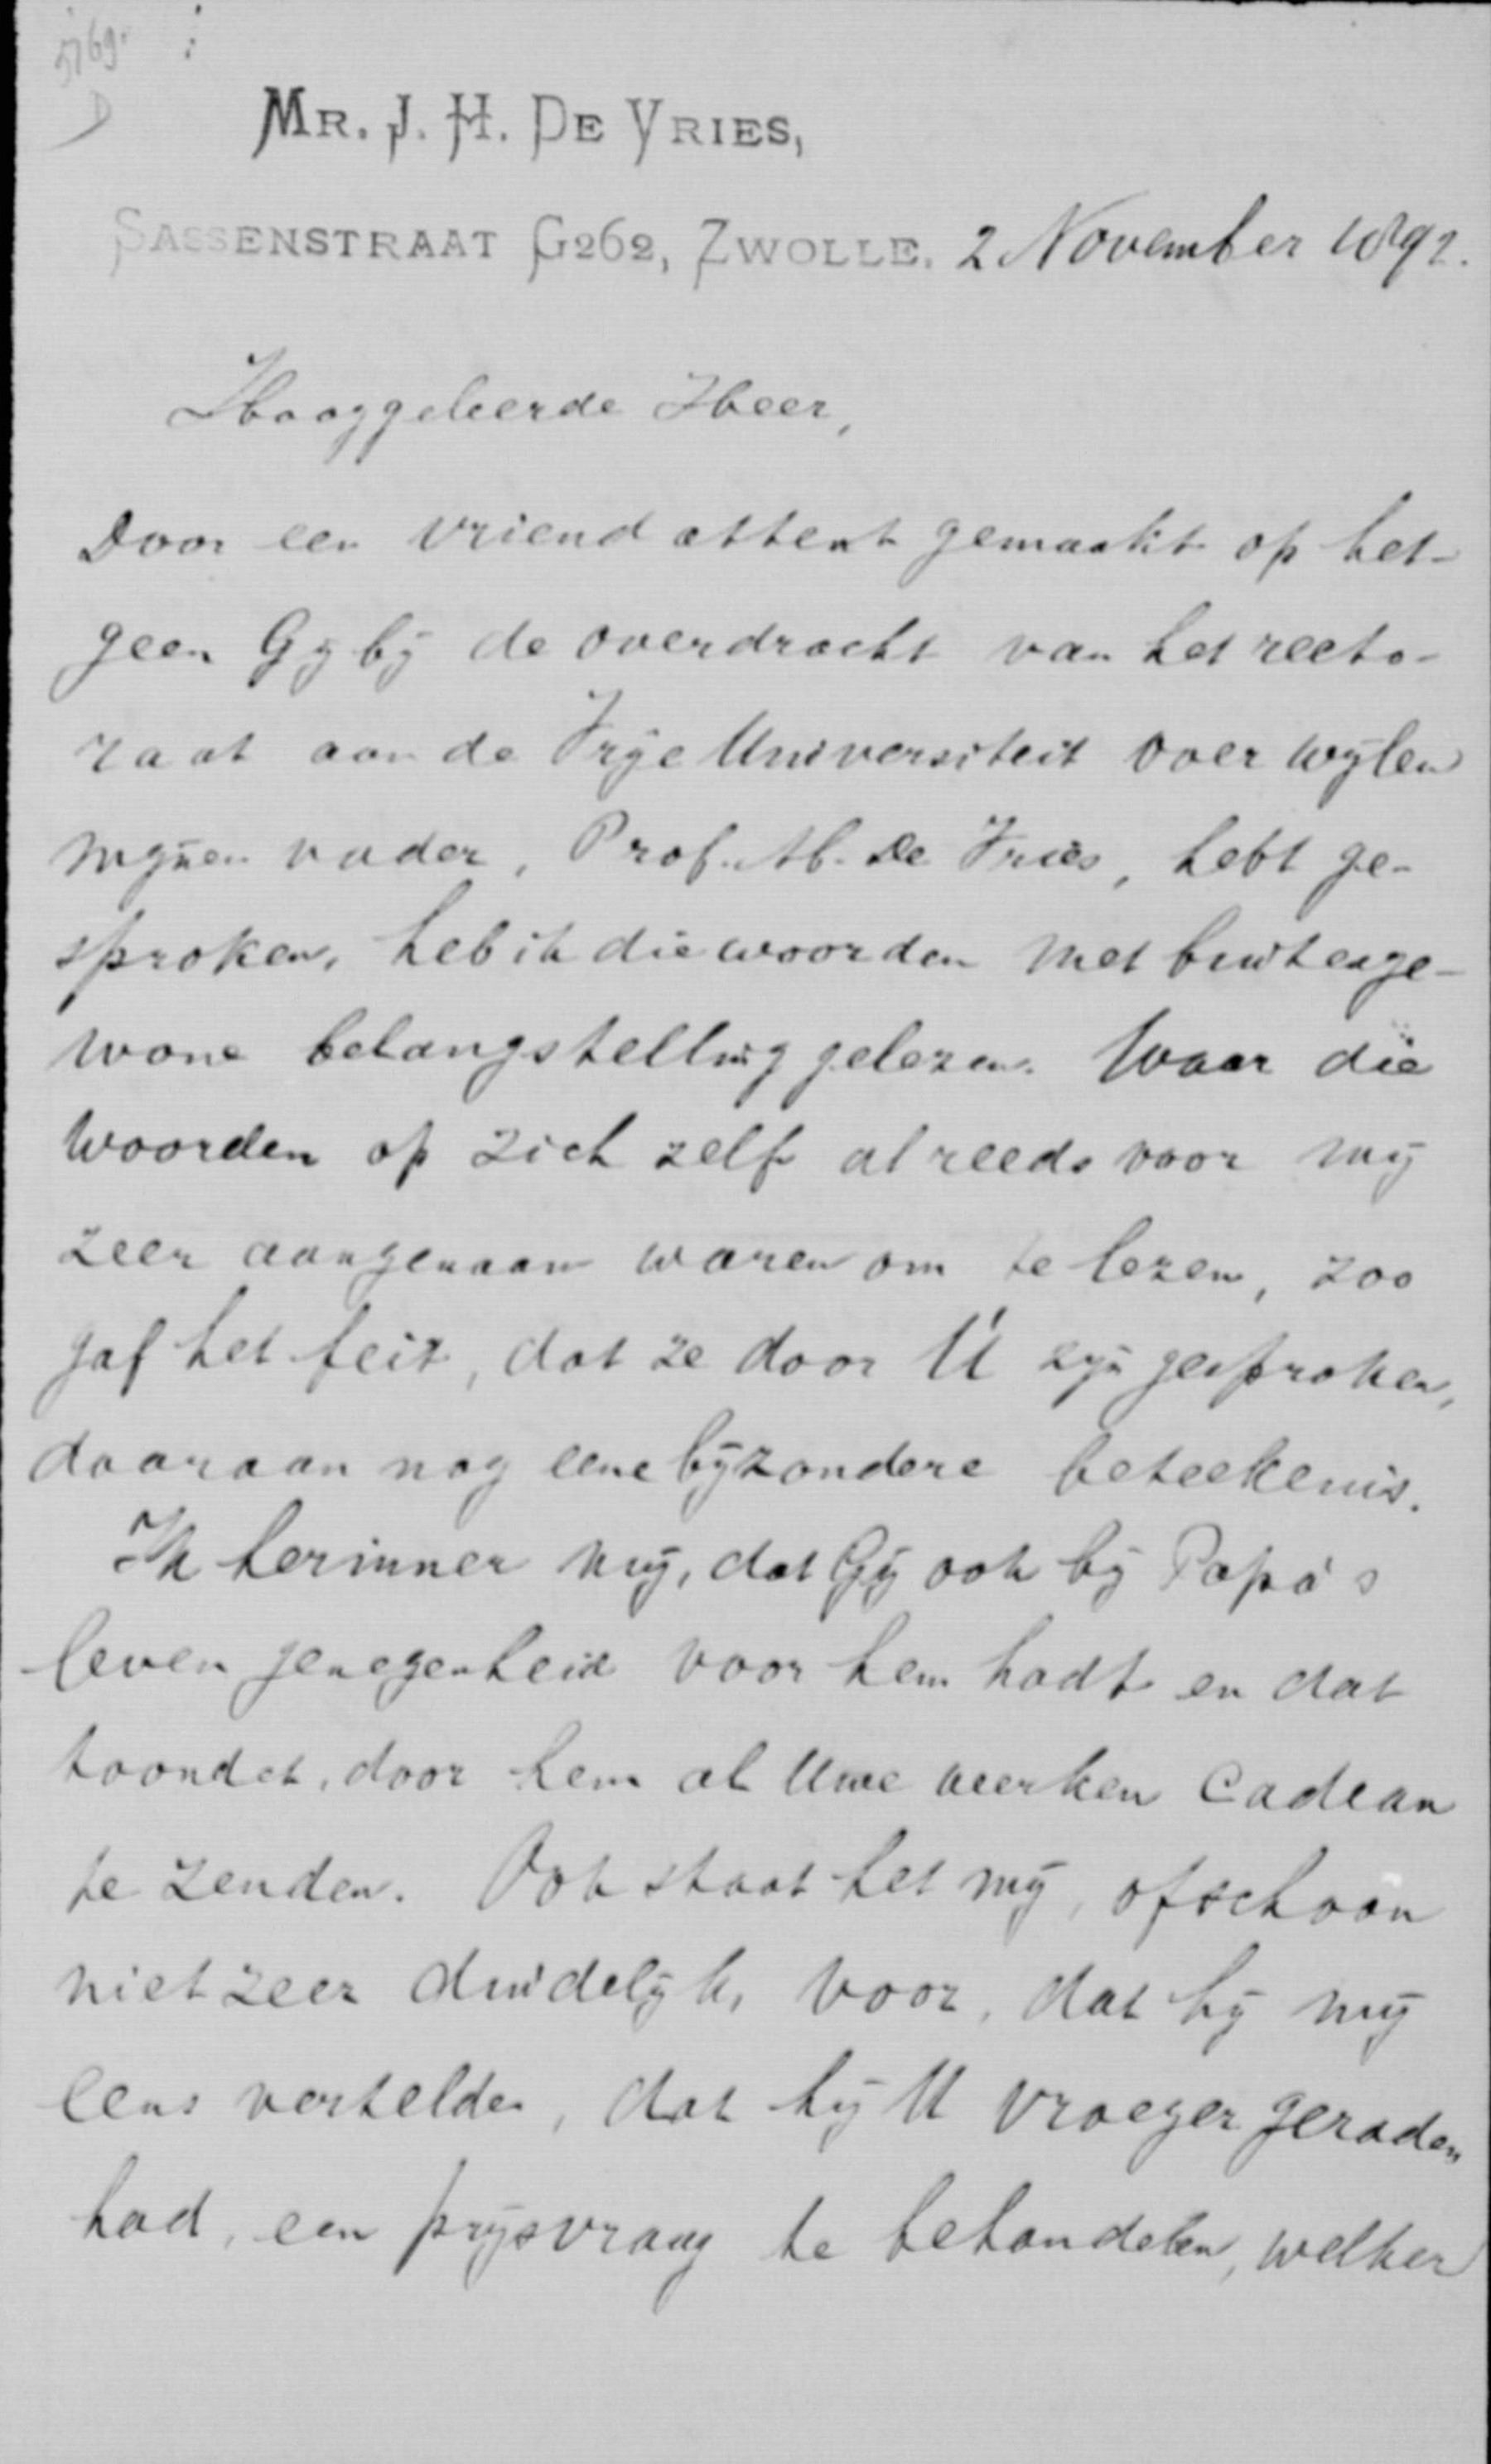 5769.
D
MR. J. H. DE VRIES,
SASSENSTRAAT G262, ZWOLLE. 2 November 1892.
Hooggeleerde Heer,
Door een vriend attent gemaakt op het-
geen Gij bij de overdracht van het recto-
raat aan de Vrije Universiteit over wijlen
mijnen vader, Prof. M. De Vries, hebt ge-
sproken, heb ik die woorden met buitenge-
wone belangstelling gelezen. Waar die
woorden op zich zelf al reeds voor mij
zeer aangenaam waren om te lezen, zoo
gaf het feit, dat ze door Ú zijn gesproken,
daaraan nog eene bijzondere beteekenis.
Ik herinner mij, dat Gij ook bij Papa's
leven genegenheid voor hem hadt en dat
toondet, door hem al Uwe werken cadeau
te zenden. Ook staat het mij, ofschoon
niet zeer duidelijk, voor, dat hij mij
eens vertelde, dat hij U vroeger geraden
had, een prijsvraag te behandelen, welker